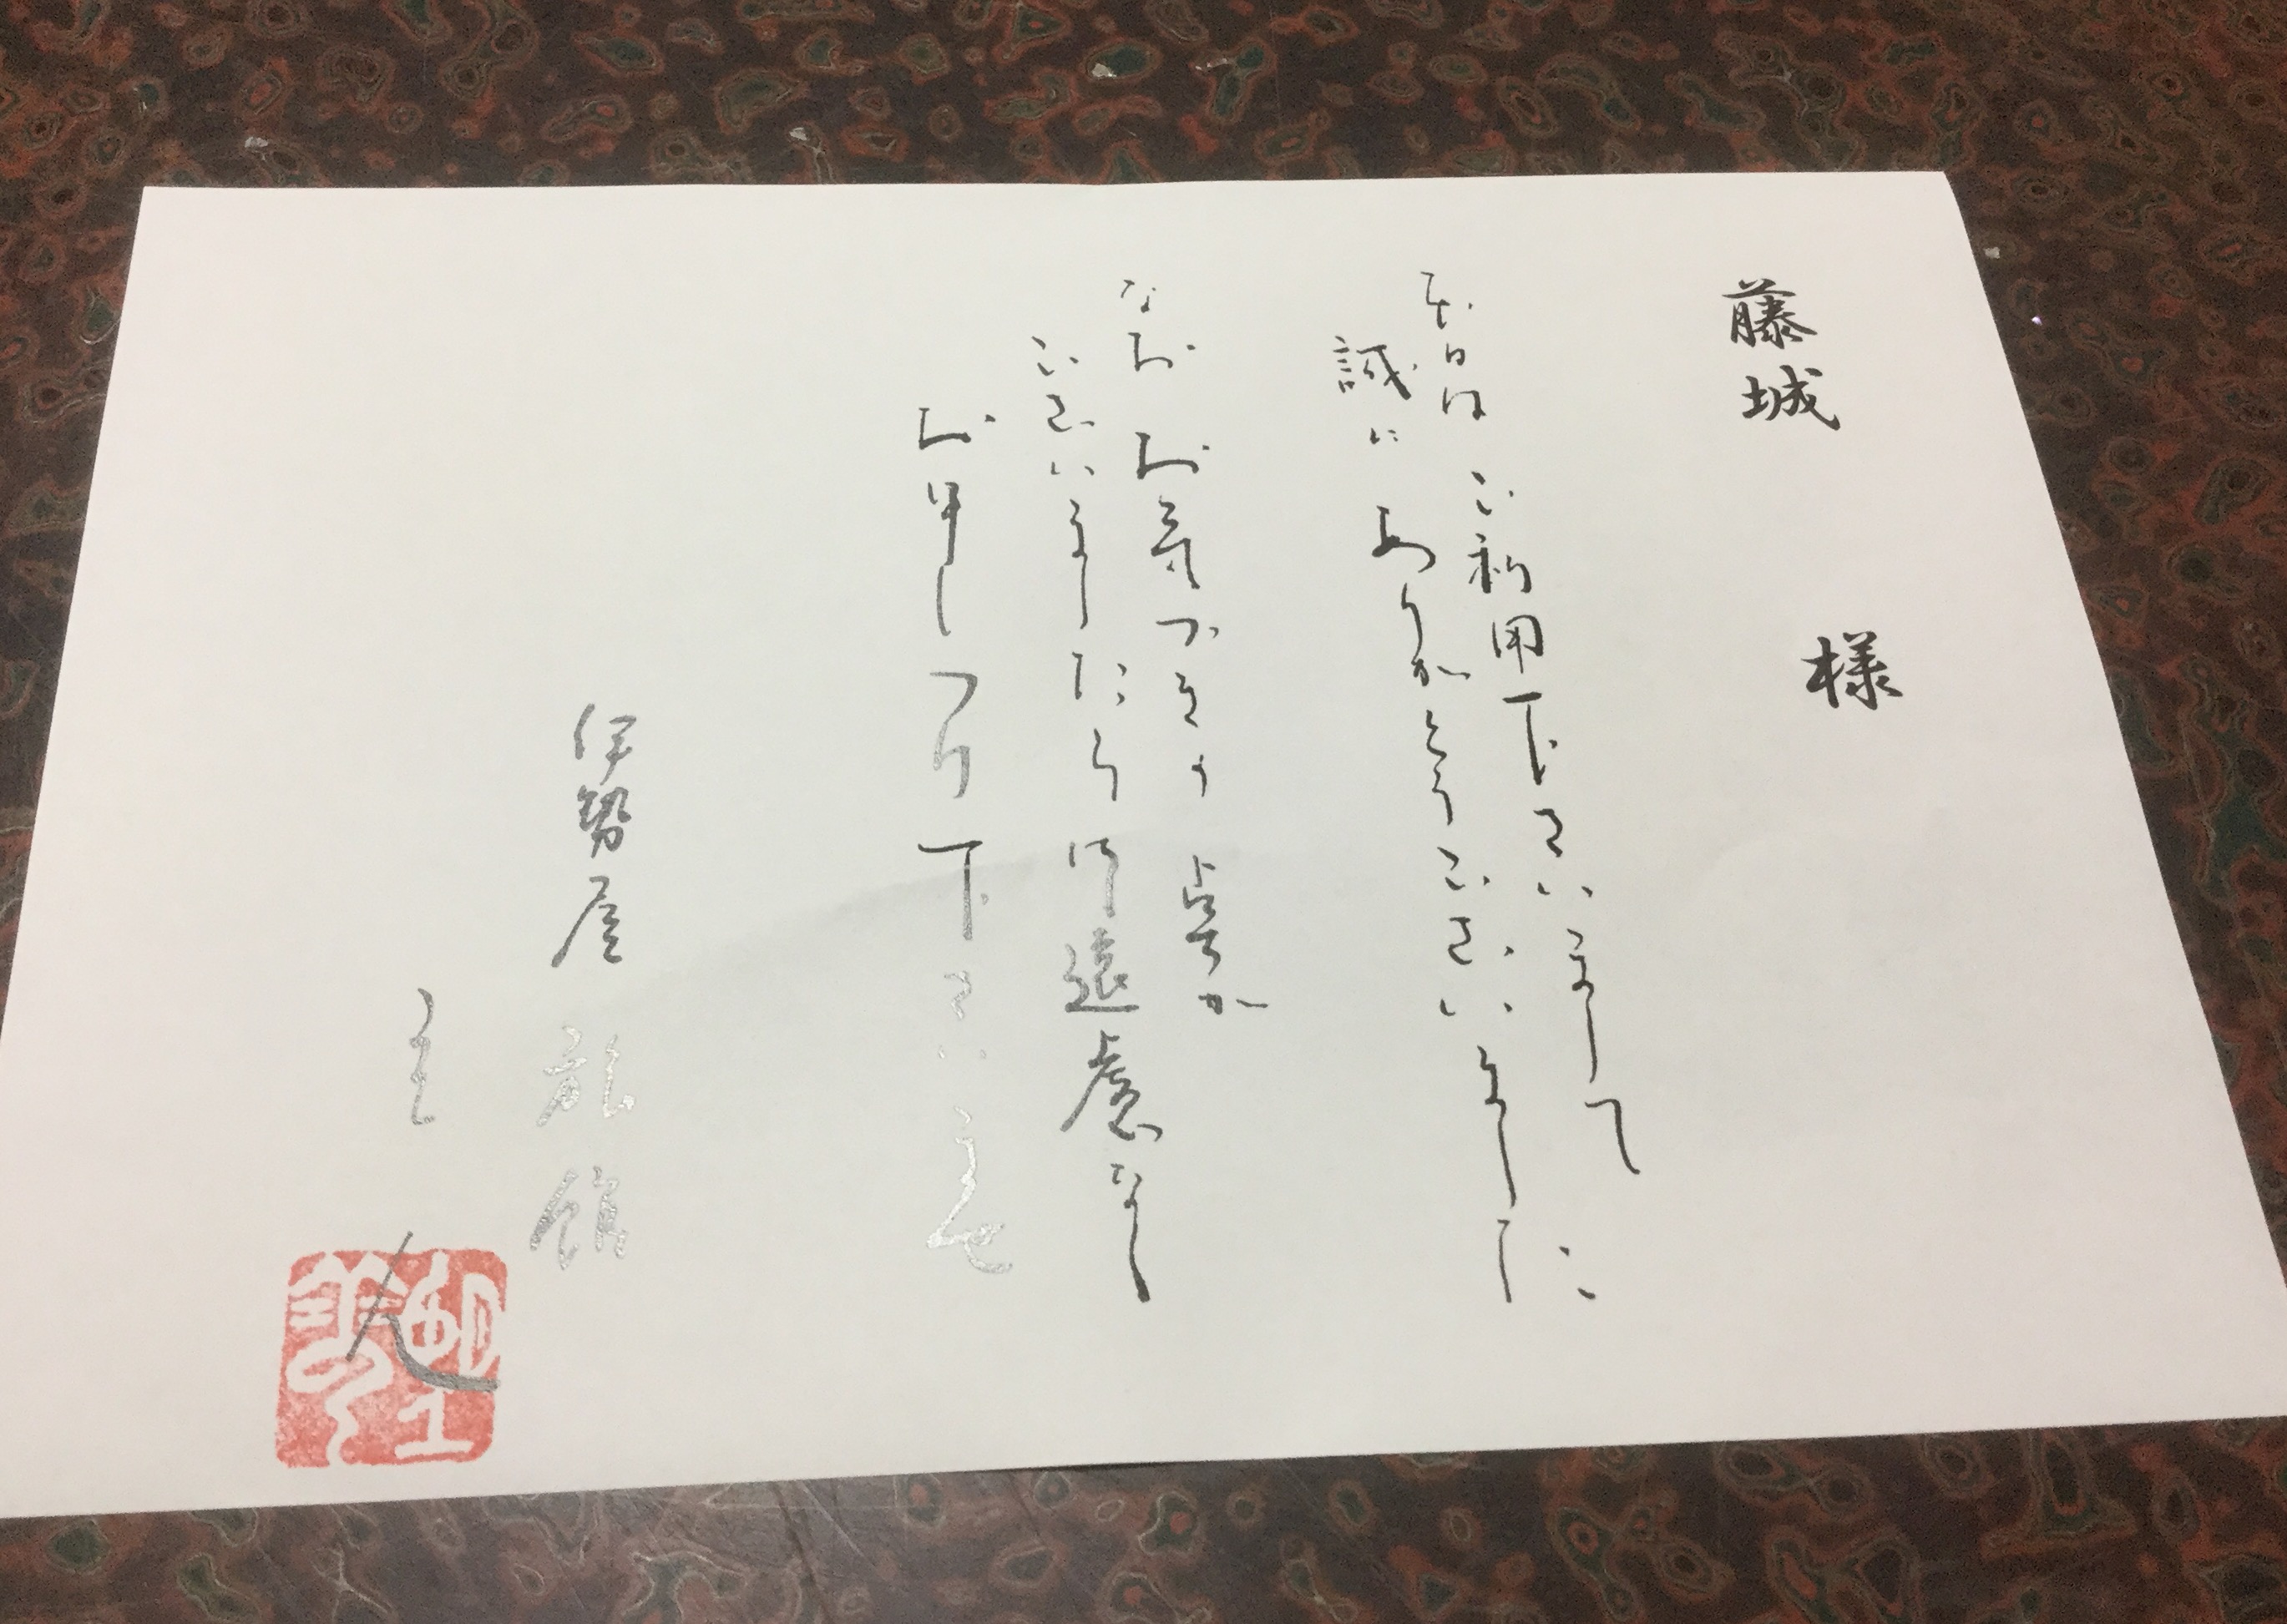 藤城 様
本日はご利用下さいまして
誠にありがとうございました
なお お気づきの点が
ございましたら御遠慮なく
お申しつけ下さいませ
伊勢屋旅館
主人